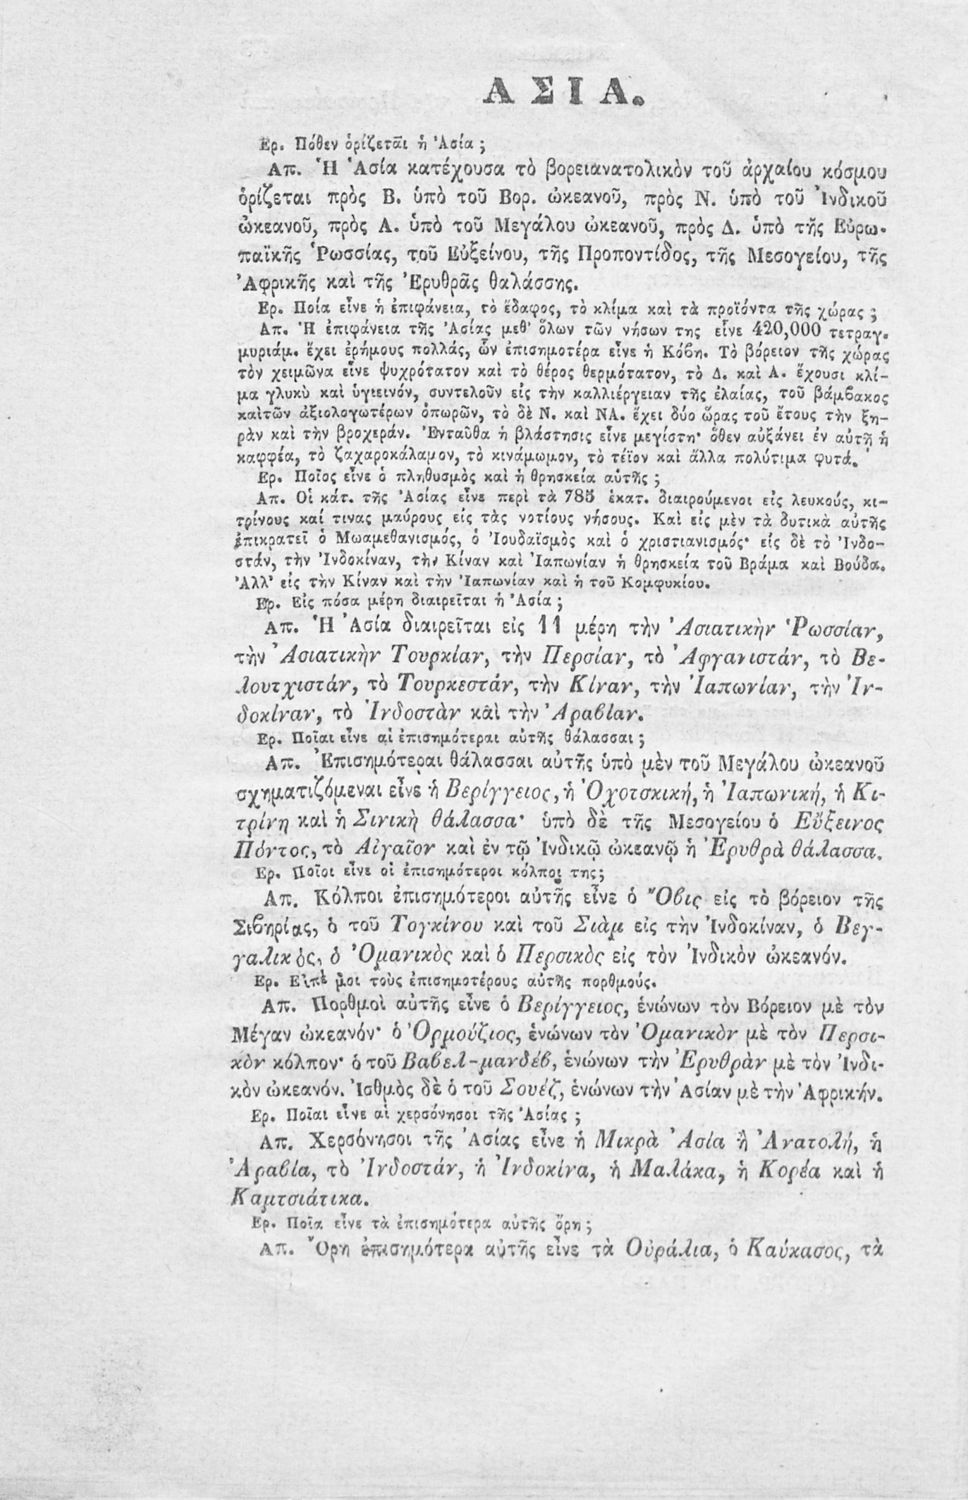 ΑΣΙΑ.
Ερ. Πόθεν ὁρίζεται ἡ Ἀσία ;
Απ. Ἡ Ἀσία κατέχουσα τὸ βορειανατολικὸν τοῦ ἀρχαίου κόσμου
ὁρίζεται πρὸς Β. ὑπὸ τοῦ Βορ. ὠκεανοῦ, πρὸς Ν. ὑπὸ τοῦ Ἰνδικοῦ
ὠκεανοῦ, πρὸς Α. ὑπὸ τοῦ Μεγάλου ὠκεανοῦ, πρὸς Δ. ὑπὸ τῆς Εὐρω-
παϊκῆς Ῥωσσίας, τοῦ Εὐξείνου, τῆς Προποντίδος, τῆς Μεσογείου, τῆς
Ἀφρικῆς καὶ τῆς Ἐρυθρᾶς θαλάσσης.
Ερ. Ποία εἶνε ἡ ἐπιφάνεια, τὸ ἔδαφος, τὸ κλίμα καὶ τὰ προϊόντα τῆς χώρας ;
Απ. Ἡ ἐπιφάνεια τῆς Ἀσίας μεθ' ὅλων τῶν νήσων της εἶνε 420,000 τετραγ.
μυριάμ. ἔχει ἐρήμους πολλάς, ὧν ἐπισημοτέρα εἶνε ἡ Κόβη. Τὸ βόρειον τῆς χώρας
τὸν χειμῶνα εἶνε ψυχρότατον καὶ τὸ θέρος θερμότατον, τὸ Δ. καὶ Α. ἔχουσι κλί-
μα γλυκὺ καὶ ὑγιεινόν, συντελοῦν εἰς τὴν καλλιέργειαν τῆς ἐλαίας, τοῦ βάμβακος
καὶτῶν ἀξιολογωτέρων ὀπωρῶν, τὸ δὲ Ν. καὶ ΝΑ. ἔχει δύο ὥρας τοῦ ἔτους τὴν ξη-
ρὰν καὶ τὴν βροχεράν. Ἐνταῦθα ἡ βλάστησις εἶνε μεγίστη· ὅθεν αὐξάνει ἐν αὐτῇ ἡ
καφφέα, τὸ ζαχαροκάλαμον, τὸ κινάμωμον, τὸ τέϊον καὶ ἄλλα πολύτιμα φυτά.
Ερ. Ποῖος εἶνε ὁ πληθυσμὸς καὶ ἡ θρησκεία αὐτῆς ;
Απ. Οἱ κάτ. τῆς Ἀσίας εἶνε περὶ τὰ 785 ἑκατ. διαιρούμενοι εἰς λευκούς, κι-
τρίνους καί τινας μαύρους εἰς τὰς νοτίους νήσους. Καὶ εἰς μὲν τὰ δυτικὰ αὐτῆς
ἐπικρατεῖ ὁ Μωαμεθανισμός, ὁ Ἰουδαϊσμὸς καὶ ὁ χριστιανισμός· εἰς δὲ τὸ Ἰνδο-
στάν, τὴν Ἰνδοκίναν, τὴν Κίναν καὶ Ἰαπωνίαν ἡ θρησκεία τοῦ Βράμα καὶ Βούδα.
Ἀλλ' εἰς τὴν Κίναν καὶ τὴν Ἰαπωνίαν καὶ ἡ τοῦ Κομφυκίου.
Ερ. Εἰς πόσα μέρη διαιρεῖται ἡ Ἀσία ;
Απ. Ἡ Ἀσία διαιρεῖται εἰς 11 μέρη τὴν Ἀσιατικὴν Ῥωσσίαν,
τὴν Ἀσιατικὴν Τουρκίαν, τὴν Περσίαν, τὸ Ἀφγανιστάν, τὸ Βε-
λουτχιστάν, τὸ Τουρκεστάν, τὴν Κίναν, τὴν Ἰαπωνίαν, τὴν Ἰν-
δοκίναν, τὸ Ἰνδοστὰν καὶ τὴν Ἀραβίαν.
Ερ. Ποῖαι εἶνε αἱ ἐπισημότεραι αὐτῆς θάλασσαι ;
Απ. Ἐπισημότεραι θάλασσαι αὐτῆς ὑπὸ μὲν τοῦ Μεγάλου ὠκεανοῦ
σχηματιζόμεναι εἶνε ἡ Βερίγγειος, ἡ Ὀχοτσκική, ἡ Ἰαπωνική, ἡ Κι-
τρίνη καὶ ἡ Σινικὴ θάλασσα· ὑπὸ δὲ τῆς Μεσογείου ὁ Εὔξεινος
Πόντος, τὸ Αἰγαῖον καὶ ἐν τῷ Ἰνδικῷ ὠκεανῷ ἡ Ἐρυθρὰ θάλασσα.
Ερ. Ποῖοι εἶνε οἱ ἐπισημότεροι κόλποι της;
Απ. Κόλποι ἐπισημότεροι αὐτῆς εἶνε ὁ Ὄβις εἰς τὸ βόρειον τῆς
Σιβηρίας, ὁ τοῦ Τογκίνου καὶ τοῦ Σιὰμ εἰς τὴν Ἰνδοκίναν, ὁ Βεγ-
γαλικὸς, ὁ Ὀμανικὸς καὶ ὁ Περσικὸς εἰς τὸν Ἰνδικὸν ὠκεανόν.
Ερ. Εἰπέ μοι τοὺς ἐπισημοτέρους αὐτῆς πορθμούς.
Απ. Πορθμοὶ αὐτῆς εἶνε ὁ Βερίγγειος, ἑνώνων τὸν Βόρειον μὲ τὸν
Μέγαν ὠκεανόν· ὁ Ὁρμούζιος, ἑνώνων τὸν Ὀμανικὸν μὲ τὸν Περσι-
κὸν κόλπον· ὁ τοῦ Βαβελ-μανδέβ, ἑνώνων τὴν Ἐρυθρὰν μὲ τὸν Ἰνδι-
κὸν ὠκεανόν. Ἰσθμὸς δὲ ὁ τοῦ Σουέζ, ἑνώνων τὴν Ἀσίαν μὲ τὴν Ἀφρικήν.
Ερ. Ποῖαι εἶνε αἱ χερσόνησοι τῆς Ἀσίας ;
Απ. Χερσόνησοι τῆς Ἀσίας εἶνε ἡ Μικρὰ Ἀσία ἢ Ἀνατολή, ἡ
Ἀραβία, τὸ Ἰνδοστάν, ἡ Ἰνδοκίνα, ἡ Μαλάκα, ἡ Κορέα καὶ ἡ
Καμτσιάτικα.
Ερ. Ποῖα εἶνε τὰ ἐπισημότερα αὐτῆς ὄρη ;
Απ. Ὄρη ἐπισημότερα αὐτῆς εἶνε τὰ Οὐράλια, ὁ Καύκασος, τὰ